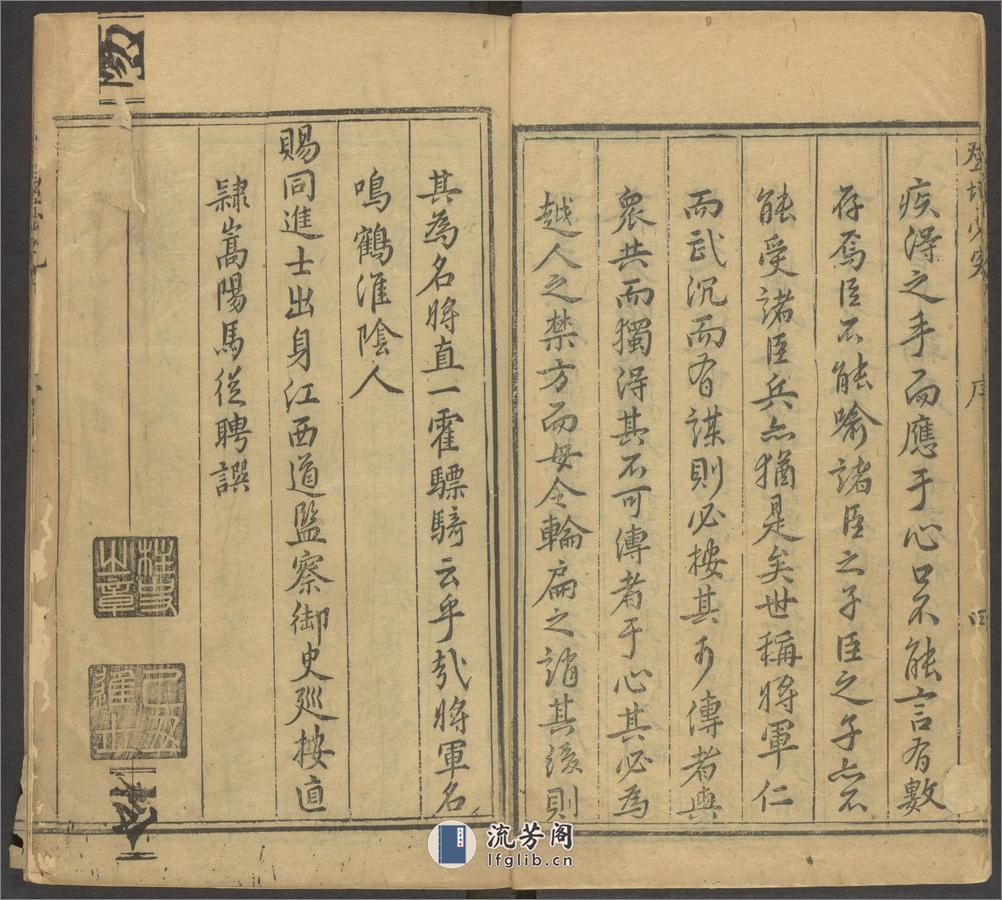 登壇必究
序
疾得之手而應于心口不能言有數
存焉臣不能喻諸臣之子臣之子亦不
能受諸臣兵亦猶是矣世稱將軍仁
而武沉而有謀則必按其可傳者與
衆共而獨得其不可傳者于心其必為
越人之禁方而毋令輪扁之誚其後則
其為名將直一霍驃騎云乎哉將軍名
鳴鶴淮陰人
賜同進士出身江西道監察御史廵按直
隷嵩陽馬從聘譔
流芳阁
lfglib.cn